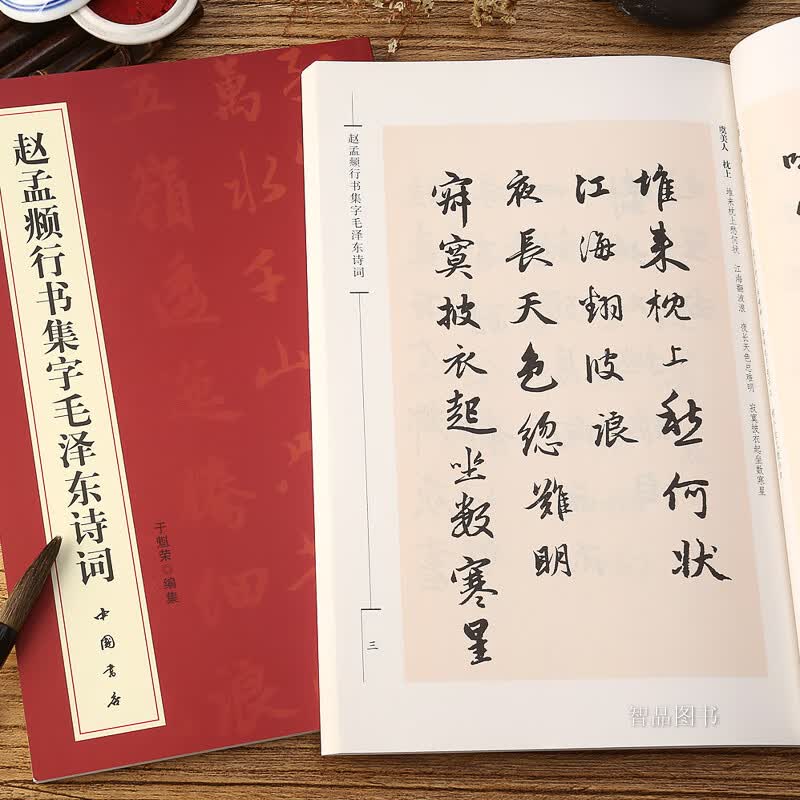 赵孟頫行书集字毛泽东诗词
于魁荣◎编集
中國書店
萬水千山
五嶺逶迤騰細浪
虞美人 枕上 堆来枕上愁何状 江海翻波浪 夜长天色总难明 寂寞披衣起坐数寒星
堆来枕上愁何状
江海翻波浪
夜長天色總難明
寂寞披衣起坐數寒星
赵孟頫行书集字毛泽东诗词
三
智品图书